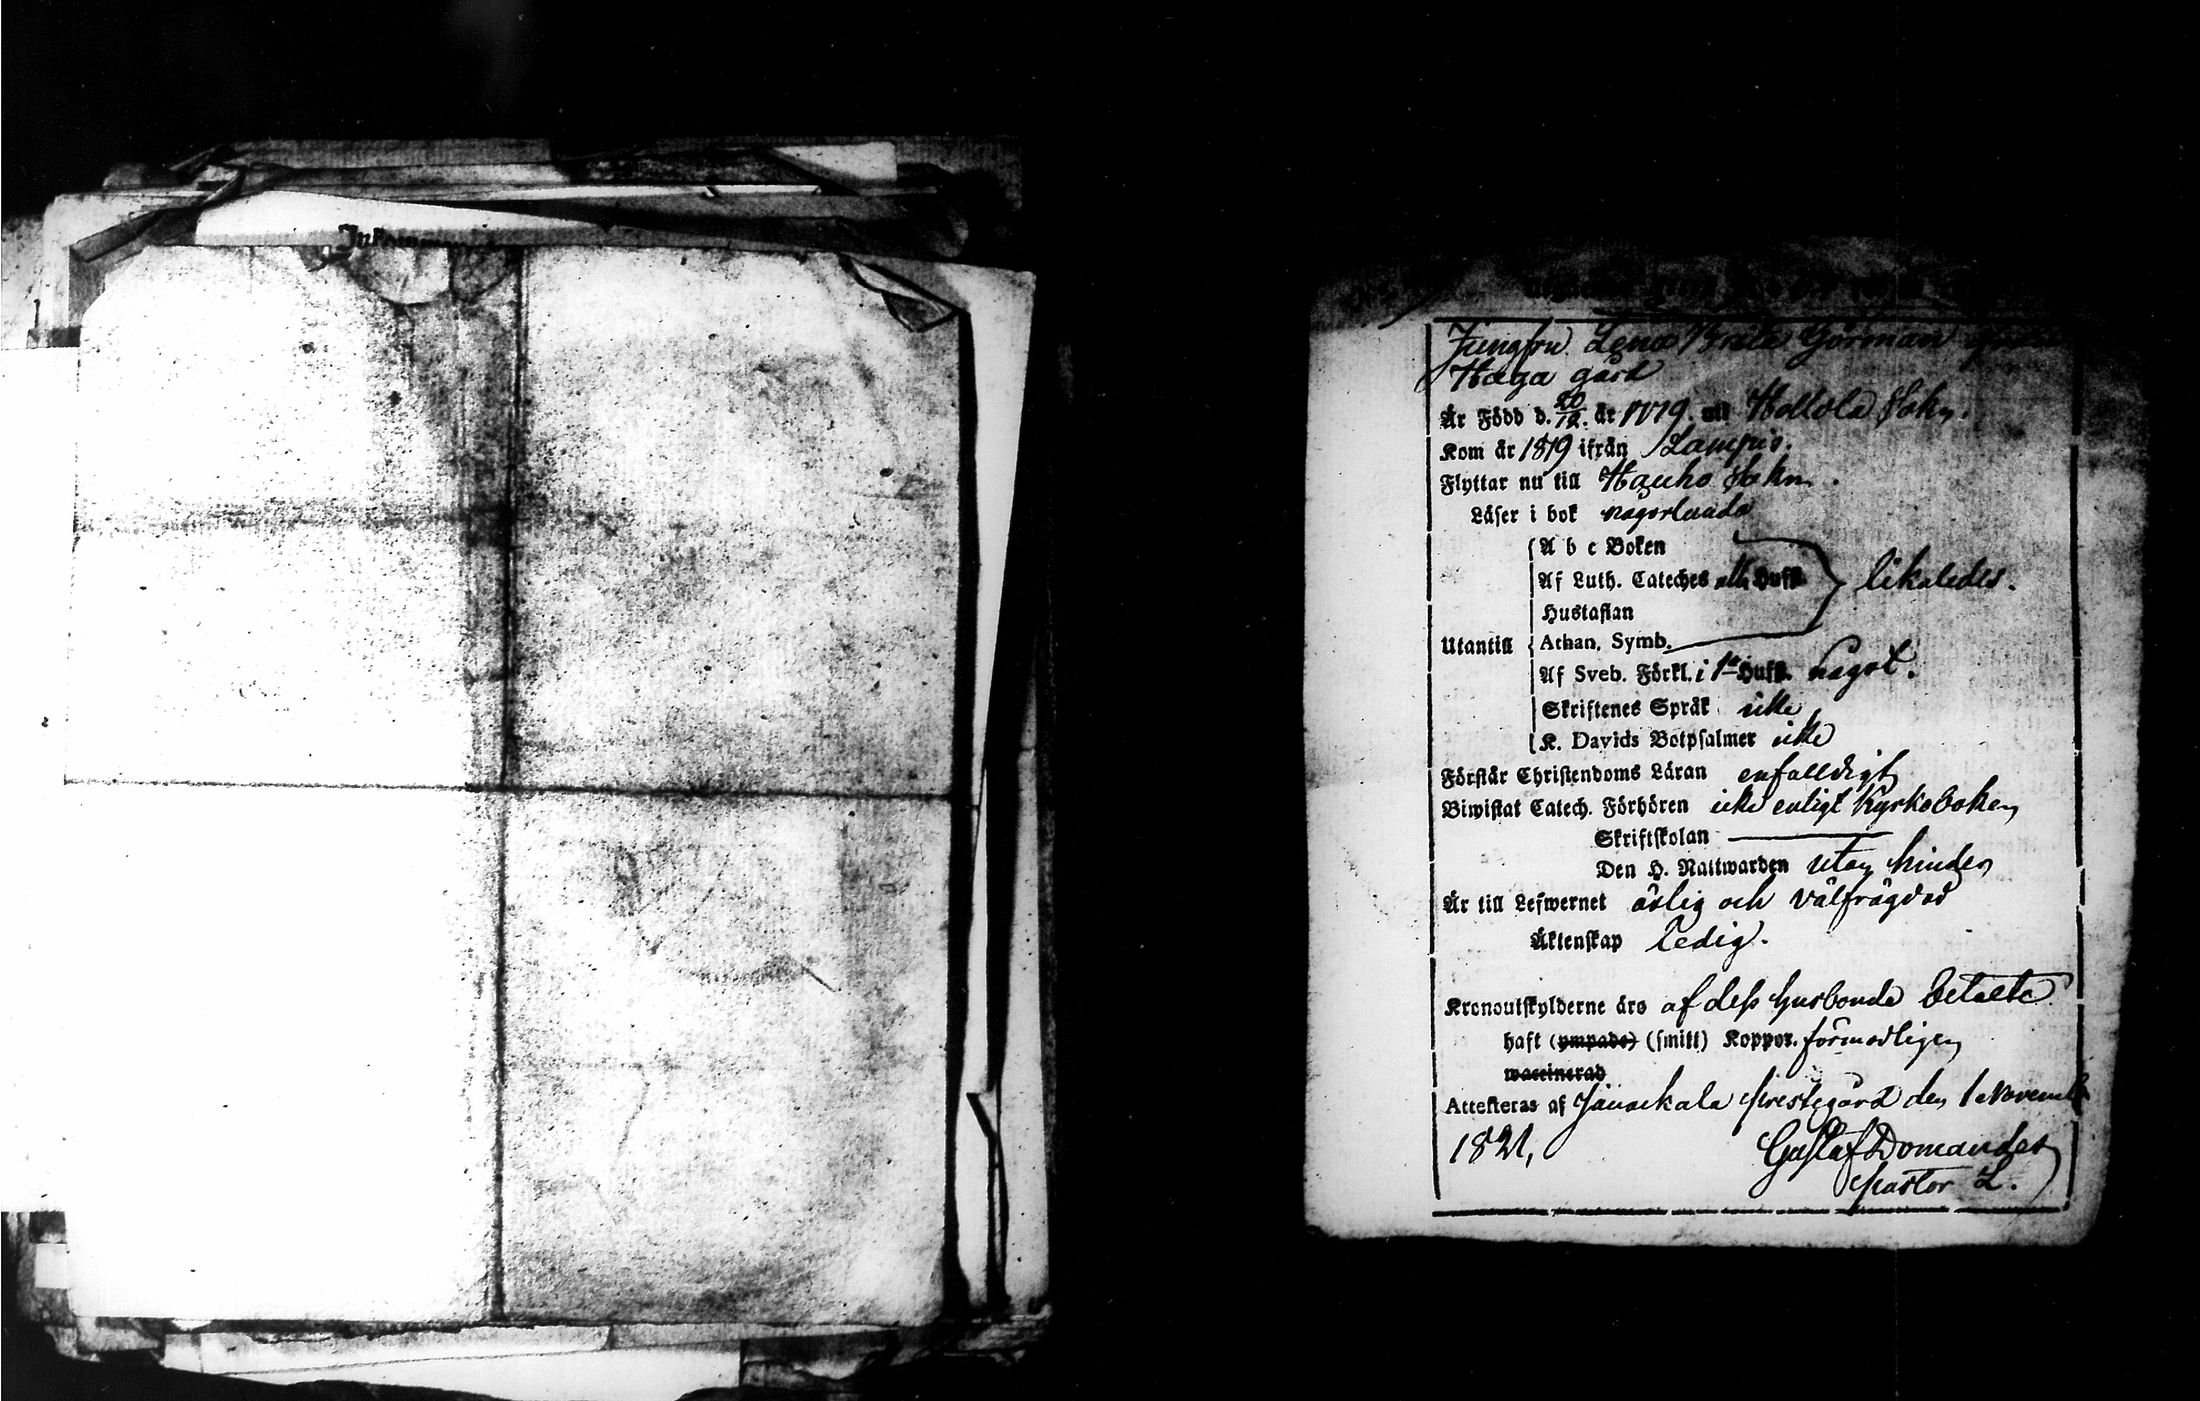 Jungfru Lena Brita Görman ifrån
Haga gård
Är Född d. 20/12. år 1779. uti Hollola Sokn.
Kom år 1819 ifrån Lampis.
Flyttar nu till Hauho Sokn.
Läser i bok någorlunda
A b c Boken
Af Luth. Cateches alla Hufst. likaledes.
Hustaflan
Utantill Athan. Symb.
Af Sveb. Förkl. i 1a Hufst. något.
Skriftenes Språk icke
K. Davids Botpsalmer icke
Förstår Christendoms Läran enfalldigt
Biwistat Catech. Förhören icke enligt Kyrkoboken
Skriftskolan
Den H. Nattwarden utan hinder
Är till Lefwernet ärlig och välfrägdad
Äktenskap ledig.
Kronoutskylderne äro af dess husbonde betalte
haft (ympade) (smitt) Koppor. förmodligen
waccinerad
Attesteras af Janackala Prestegård den 1 Novemb
1821,
Gustaf Domander
Pastor L.